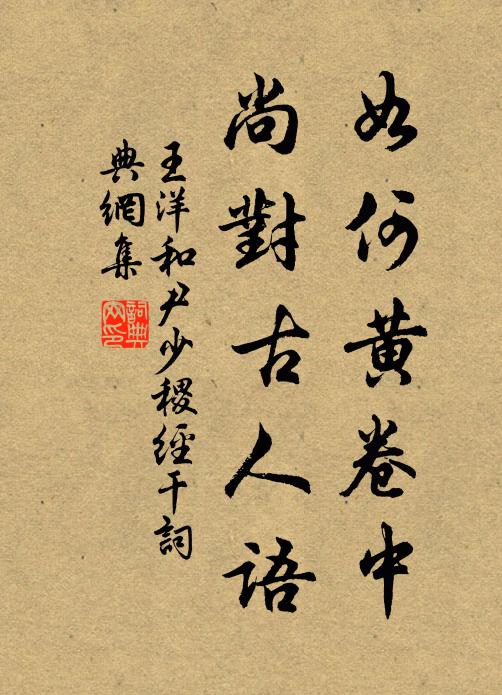 如何黃卷中
尚對古人語
王洋和尹少稷經干詞
典網集
詞典
网印